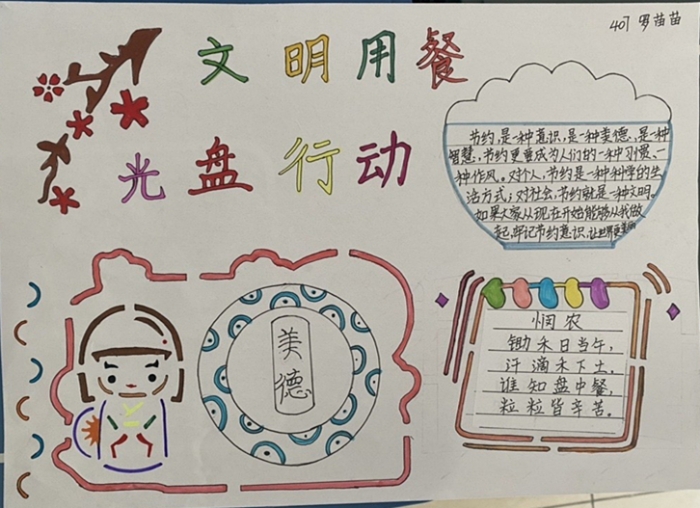 407 罗苗苗
文明用餐
光盘行动
节约,是一种意识,是一种美德,是一种
智慧,节约更重成为人们的一种习惯、一
种作风。对个人,节约是一种科学的生
活方式;对社会,节约就是一种文明。
如果大家从现在开始能够从我做
起,牢记节约意识,让世界更美好
美
德
悯农
锄禾日当午,
汗滴禾下土。
谁知盘中餐,
粒粒皆辛苦。